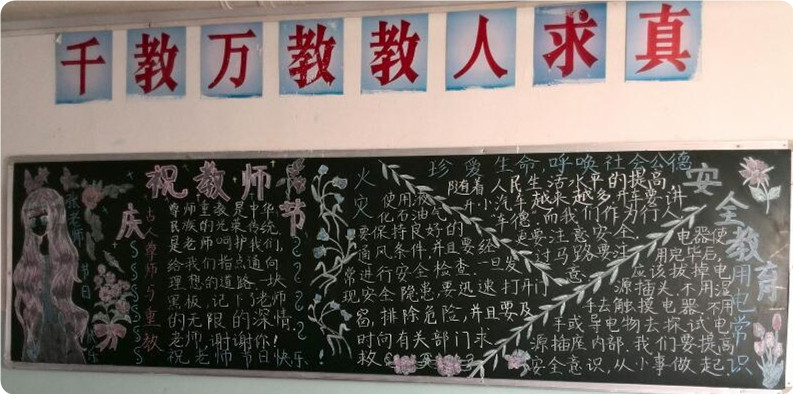 千教万教教人求真
庆祝教师节
张老师
节日
快乐
古人尊师与重教
尊师重道是中华
民族的美
是老师呵护我们,
给我们指点通向
理想的道路,一块
黑板,记下了老师
的无限的深情!
老师,谢谢你
祝老师节日快乐.
珍爱生命呼唤社会公德
随着人民生活水平的提高,
开小汽车越来越多,开车要讲
车德,而我们作为行人
更要注意安全
过马路要注
意.
火灾
使用液
化石油气,
要保持良好的
通风条件,并且要经
常进行安全检查.一旦发
现安全隐患,要迅速打开门
窗,排除危险,并且要及
时向有关部门求
救
安全教育
用电常识
电器使
用完毕后,
应该拔掉电
源插头,不用湿
手去触摸电器,不用
手或导电物去探试电
源插座内部,我们要提高
安全意识,从小事做起